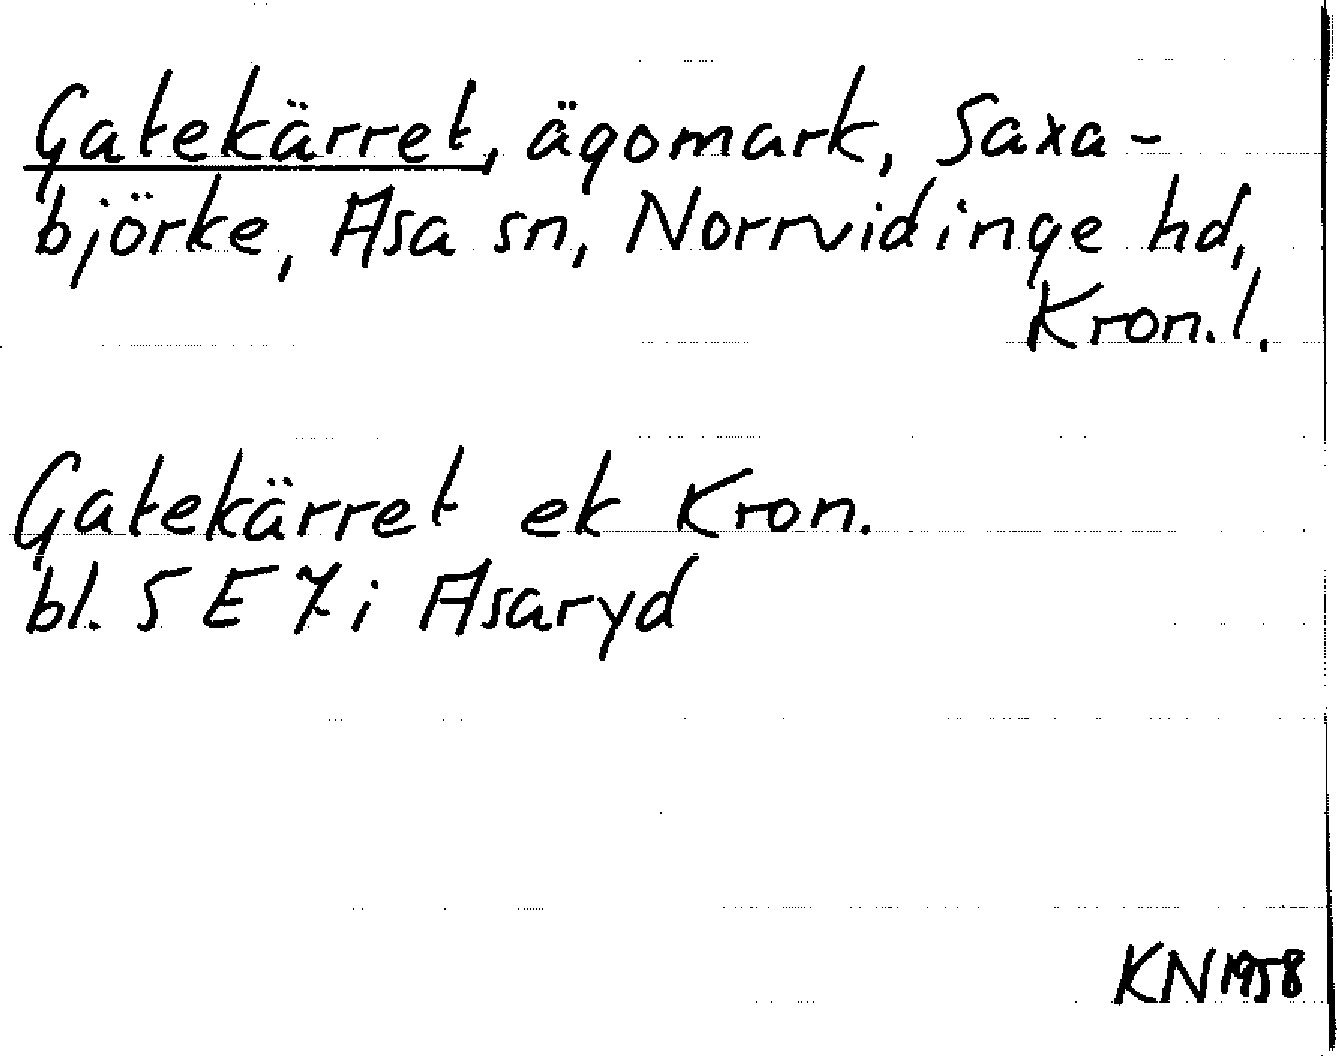 Gatekärret, ägomark, Saxa-
björke, Asa sn, Norrvidinge hd,
Kron.l.
Gatekärret ek Kron.
bl. 5 E 7 i Asaryd
KN 1958